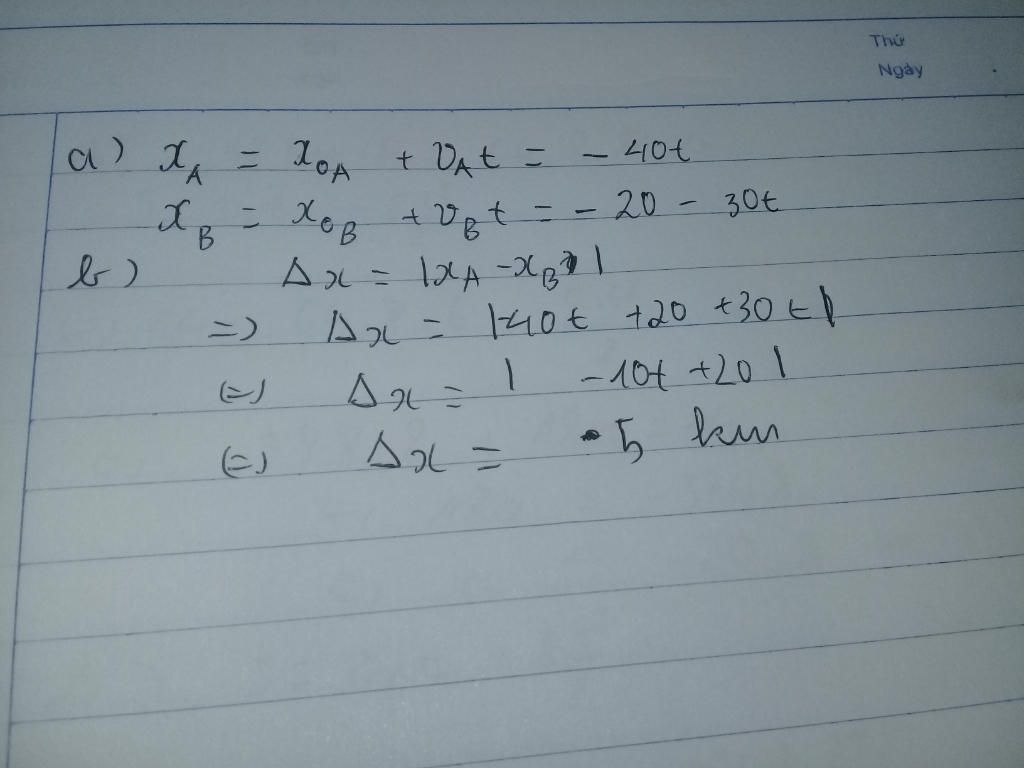 Thứ
Ngày
a) x_A = x_0A + v_A t = - 40t
x_B = x_0B + v_B t = - 20 - 30t
b) Δx = |x_A - x_B|
=> Δx = |-40t +20 +30t|
(=) Δx = | -10t +20 |
(=) Δx = 5 km